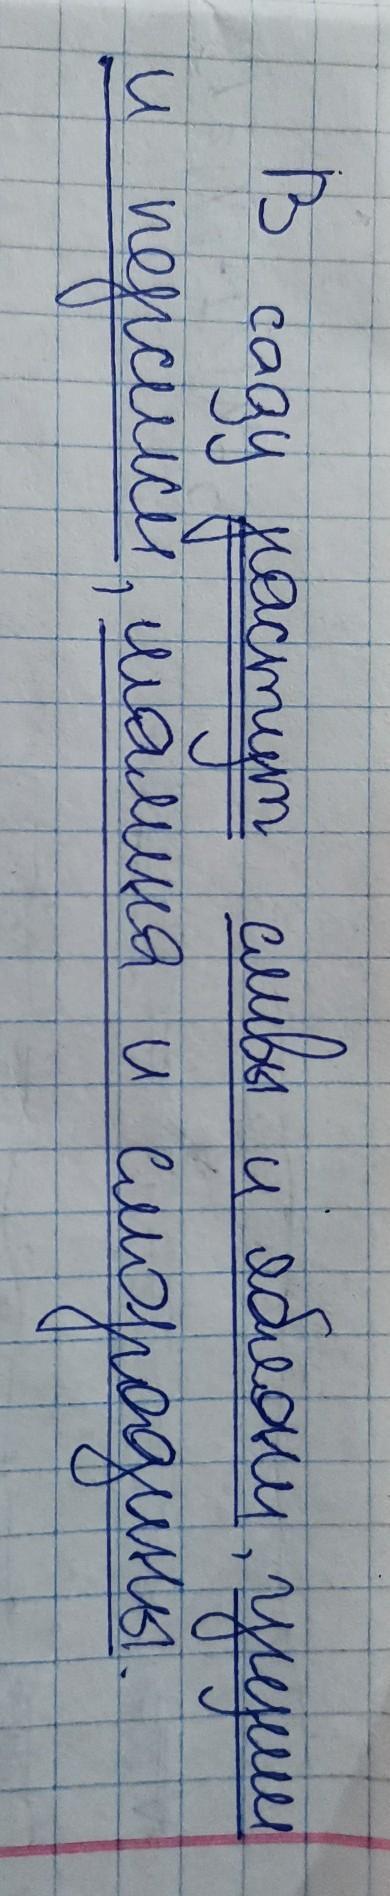 В саду растут сливы и яблони, груши
и персики, малина и смородины.